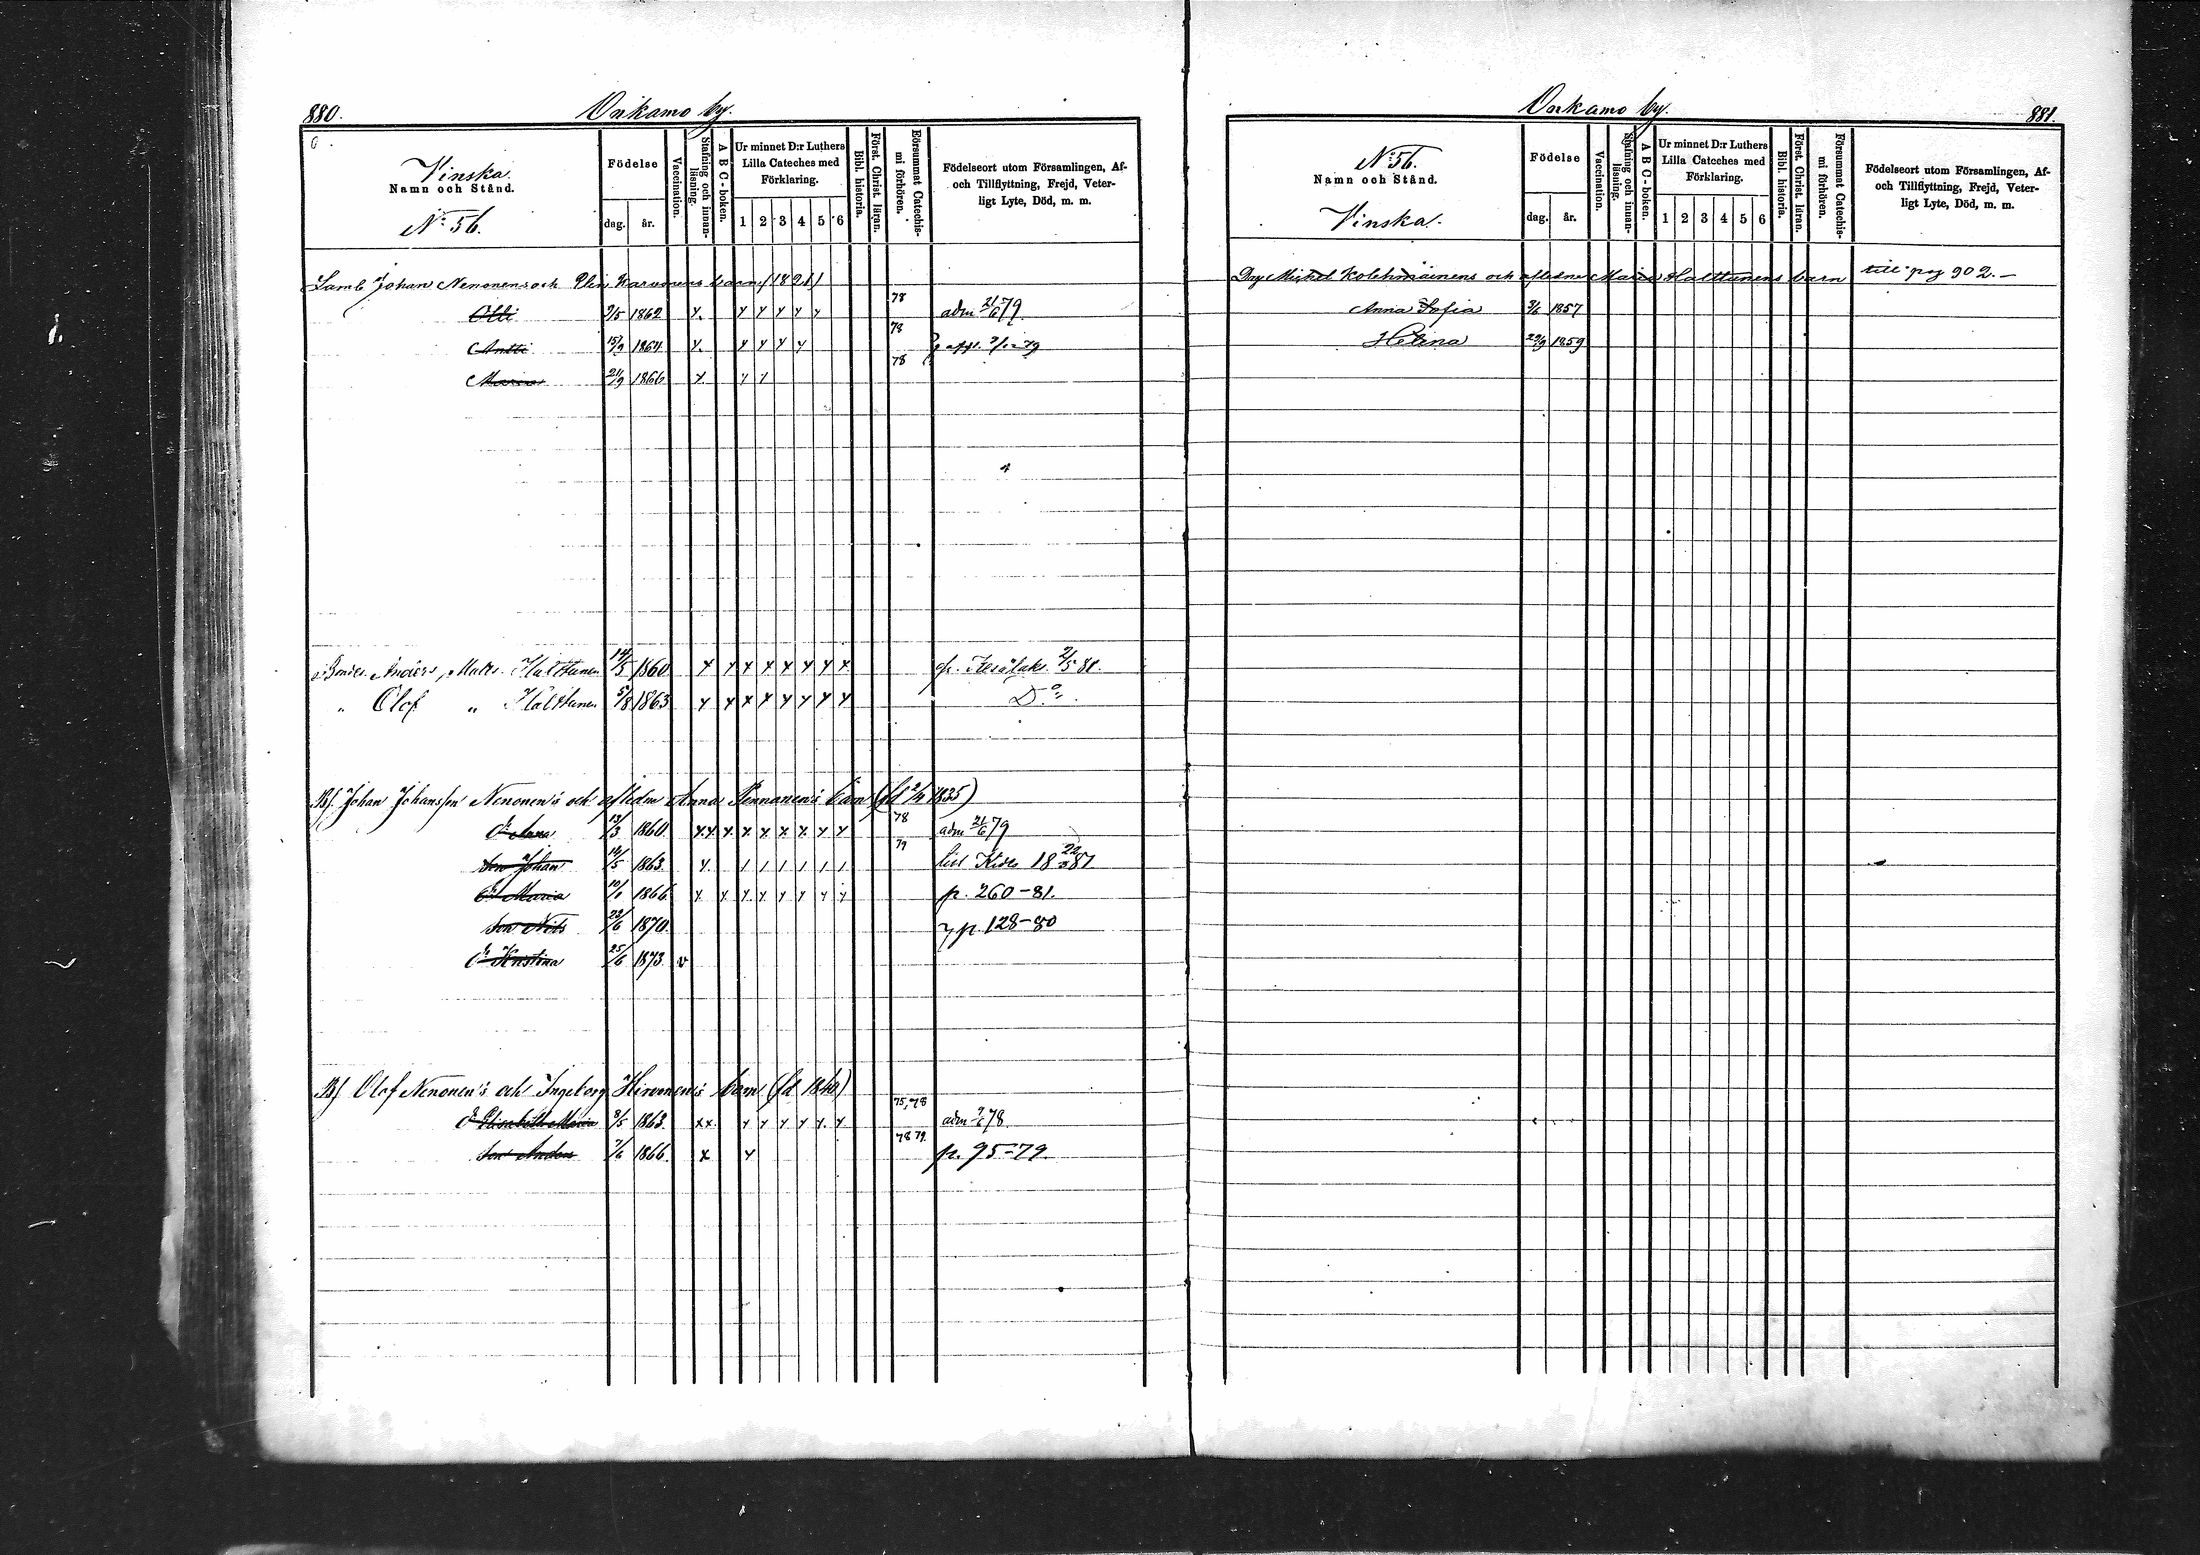 880. Onkamo by.
Vinska.
Namn och Stånd.
Nº 56.
Födelse
dag. år.
Vaccination.
Stafning och innanläsning.
A B C-boken.
Ur minnet D:r Luthers
Lilla Cateches med
Förklaring.
1 2 3 4 5 6
Bibl. historia.
Först. Christ. läran.
Försummat Catechismi förhören.
Födelseort utom Församlingen, Af-
och Tillflyttning, Frejd, Veter-
ligt Lyte, Död, m. m.
Lamb Johan Nenonens och Elin Karvonens barn (1821)
Olli 9/5 1862 x. x x x x x 78 adm 21/6 79
Antti 15/9 1864 x. x x x x 78
Maria 21/9 1866 x. x x 78
Bondes. Anders Matts. Halttunen 14/5 1860 x x x x x x x x p. Kesälaks 2/5 81.
" Olof " Halttunen 5/8 1863 x x x x x x x x Dº
Bf. Johan Johansson Nenonen's och aflidn Anna Pennanen's barn (fd 2/4 1835)
Dr Anna 13/3 1860. x x x x x x x x x 78 adm 21/6 79
Son Johan 14/5 1863. x. / / / / / / 79 till Kides 18 22/3 81
Dr Maria 10/1 1866. x x x x x x x x p. 260-81.
Son Nils 23/6 1870. p. 128-80
Dr Kristina 25/6 1873. v
Bf Olof Nenonen's och Ingeborg Hirvonen's barn (fd 1840)
Dr Elisabeth Maria 8/5 1863. x x. x x x x x. x 75,78 adm 9/6 78.
Son Anders 7/6 1866. x x 78 79 p. 95-79.
Onkamo by. 881.
Nº 56.
Namn och Stånd.
Vinska.
Födelse
dag. år.
Vaccination.
Stafning och innanläsning.
A B C-boken.
Ur minnet D:r Luthers
Lilla Cateches med
Förklaring.
1 2 3 4 5 6
Bibl. historia.
Först. Christ. läran.
Försummat Catechismi förhören.
Födelseort utom Församlingen, Af-
och Tillflyttning, Frejd, Veter-
ligt Lyte, Död, m. m.
Michel Kolehmainens och aflidne Maria Halttunens barn till pag 902.-
Anna Sofia 1857
Helena 29/9 1859